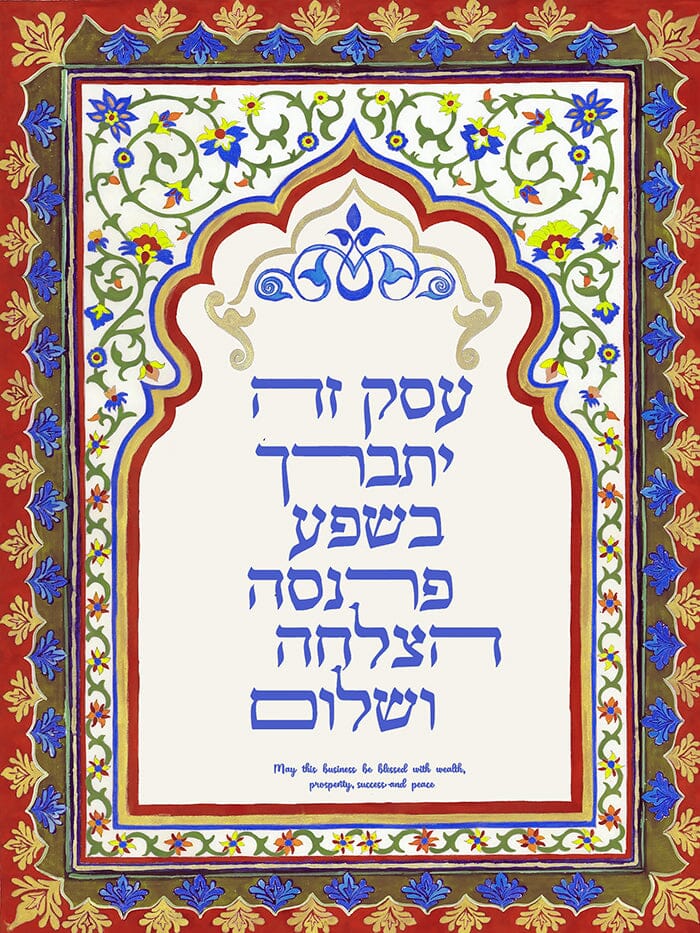 עסק זה
יתברך
בשפע
פרנסה
הצלחה
ושלום
May this business be blessed with wealth,
prosperity, success and peace